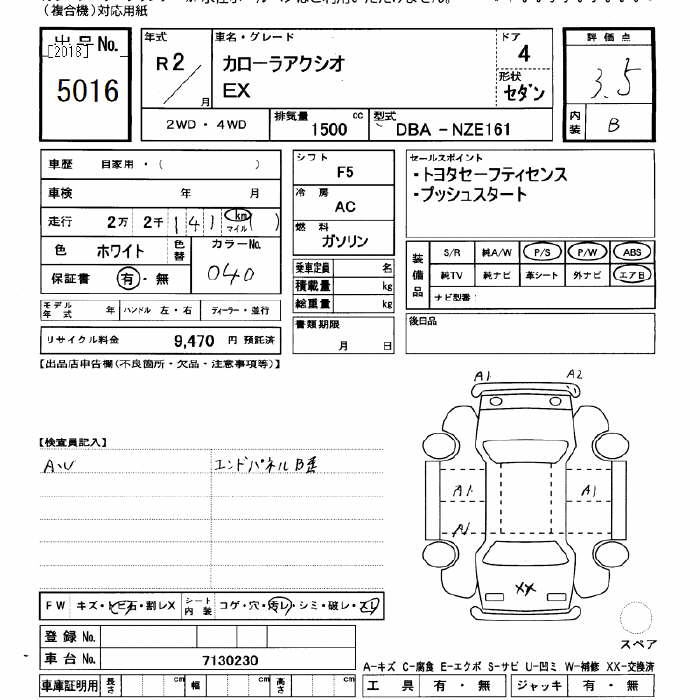 (複合機)対応用紙
出品No.
[2018]
5016
年式
R2
月
車名・グレード
カローラアクシオ
EX
ドア
4
形状
セダン
評価点
3.5
内装
B
2WD・4WD
排気量
1500 cc
型式
DBA - NZE161
車歴 自家用・( )
車検 年 月
走行 2万 2千 141 km マイル ( )
色 ホワイト 色替 カラーNo.
040
保証書 有・無
モデル年式 年 ハンドル 左・右 ディーラー・並行
リサイクル料金 9,470 円 預託済
シフト
F5
冷房
AC
燃料
ガソリン
乗車定員 名
積載量 kg
総重量 kg
書類期限
月 日
セールスポイント
・トヨタセーフティセンス
・プッシュスタート
装備品
S/R 純A/W P/S P/W ABS
純TV 純ナビ 革シート 外ナビ エアB
ナビ型番
後日品
【出品店申告欄(不良箇所・欠品・注意事項等)】
【検査員記入】
A・U
エンドパネルB歪
A1 A2
A1 A1
A1
XX
スペア
FW キズ・トビ石・割レX シート内装 コゲ・穴・汚レ・シミ・破レ・スレ
登録No.
車台No. 7130230
車庫証明用 長さ cm 幅 cm 高さ cm
A-キズ C-腐食 E-エクボ S-サビ U-凹ミ W-補修 XX-交換済
工具 有・無 ジャッキ 有・無